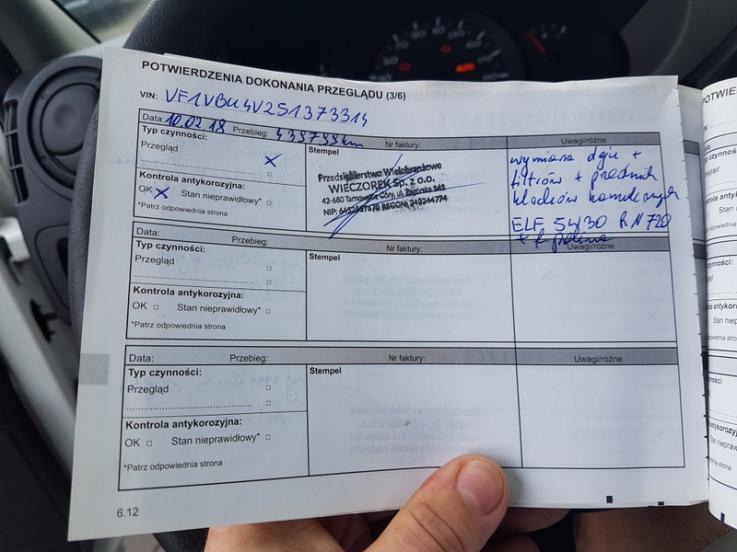 POTWIERDZENIA DOKONANIA PRZEGLĄDU (3/6)
VIN: VF1VBU4V251373314
Data: 10.02.18 Przebieg: km Nr faktury: Uwagi/różne
Typ czynności:
Przegląd X
Kontrola antykorozyjna:
OK X Stan nieprawidłowy*
*Patrz odpowiednia strona
Stempel
Przedsiębiorstwo Wielobranżowe
WIECZOREK Sp. z o.o.
42-680 Tarnowskie Góry, ul.
NIP: REGON:
wymiana oleju +
filtrów + przednich
klocków hamulcowych
ELF 5W30 RN720
Typ czynności:
Przegląd
Kontrola antykorozyjna:
OK Stan nieprawidłowy*
*Patrz odpowiednia strona
Data: Przebieg: Nr faktury: Uwagi/różne
Stempel
Data: Przebieg: Nr faktury: Uwagi/różne
Typ czynności:
Przegląd
Kontrola antykorozyjna:
OK Stan nieprawidłowy*
*Patrz odpowiednia strona
Stempel
6.12